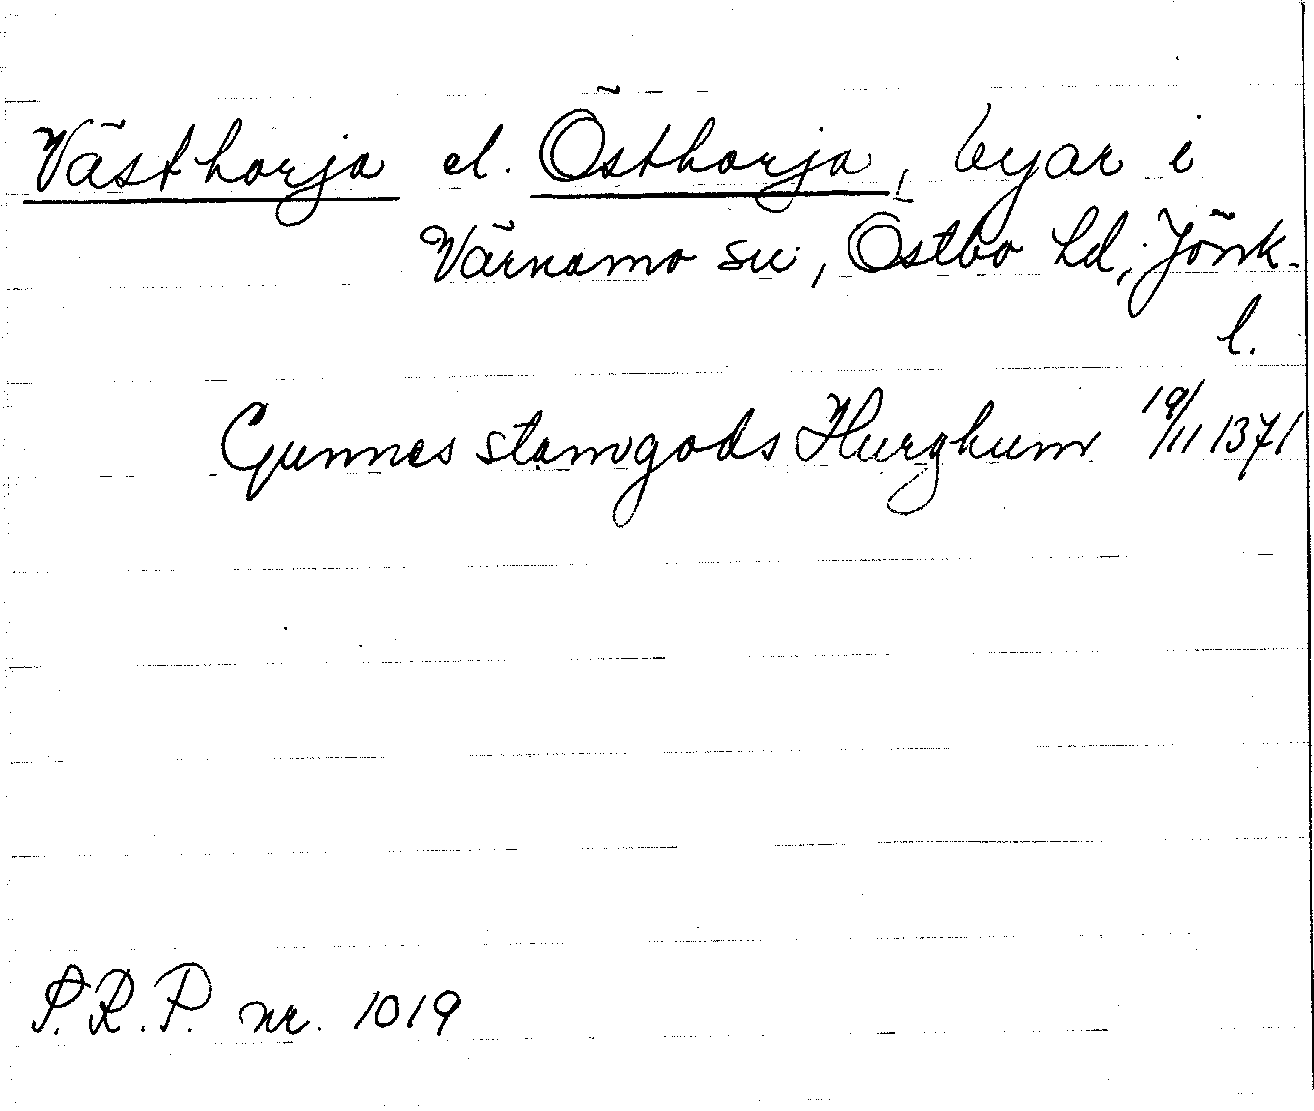 Västhorja el. Östhorja, byar i
Värnamo sn, Östbo hd, Jönk.
l.
Gunnes stamgods Hurghum 19/11 1371
S.R.P. nr. 1019